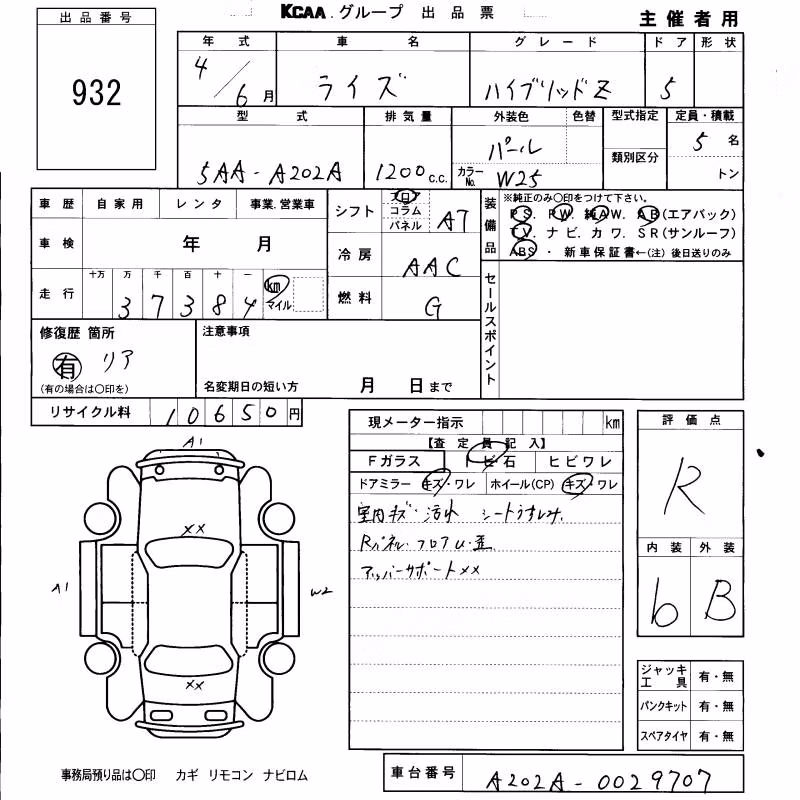 KCAA.グループ 出品票 主催者用
出品番号
932
年式 車名 グレード ドア 形状
4/6月 ライズ ハイブリッドZ 5
型式 排気量 外装色 色替 型式指定 定員・積載
5AA-A202A 1200c.c. パール 5名
カラーNo. W25 類別区分 トン
車歴 自家用 レンタ 事業.営業車
車検 年 月
走行 十万 万 千 百 十 一
3 7 3 8 4 km マイル
シフト フロア コラム パネル A7
冷房 AAC
燃料 G
装備品 ※純正のみ○印をつけて下さい。
PS. PW. 純AW. AB(エアバック)
TV. ナビ. カワ. SR(サンルーフ)
ABS ・ 新車保証書←(注) 後日送りのみ
セールスポイント
修復歴 箇所
有 リア
(有の場合は○印を)
注意事項
名変期日の短い方 月 日まで
リサイクル料 10650円
現メーター指示 km
【査定員記入】
Fガラス トビ石 ヒビワレ
ドアミラー キズ・ワレ ホイール(CP) キズ・ワレ
室内キズ・汚れ シートうすしみ.
Rパネル・フロアU・歪
アッパーサポート××
評価点
R
内装 外装
6 B
A1
××
A1
W2
××
ジャッキ工具 有・無
パンクキット 有・無
スペアタイヤ 有・無
事務局預り品は○印 カギ リモコン ナビロム
車台番号 A202A-0029707